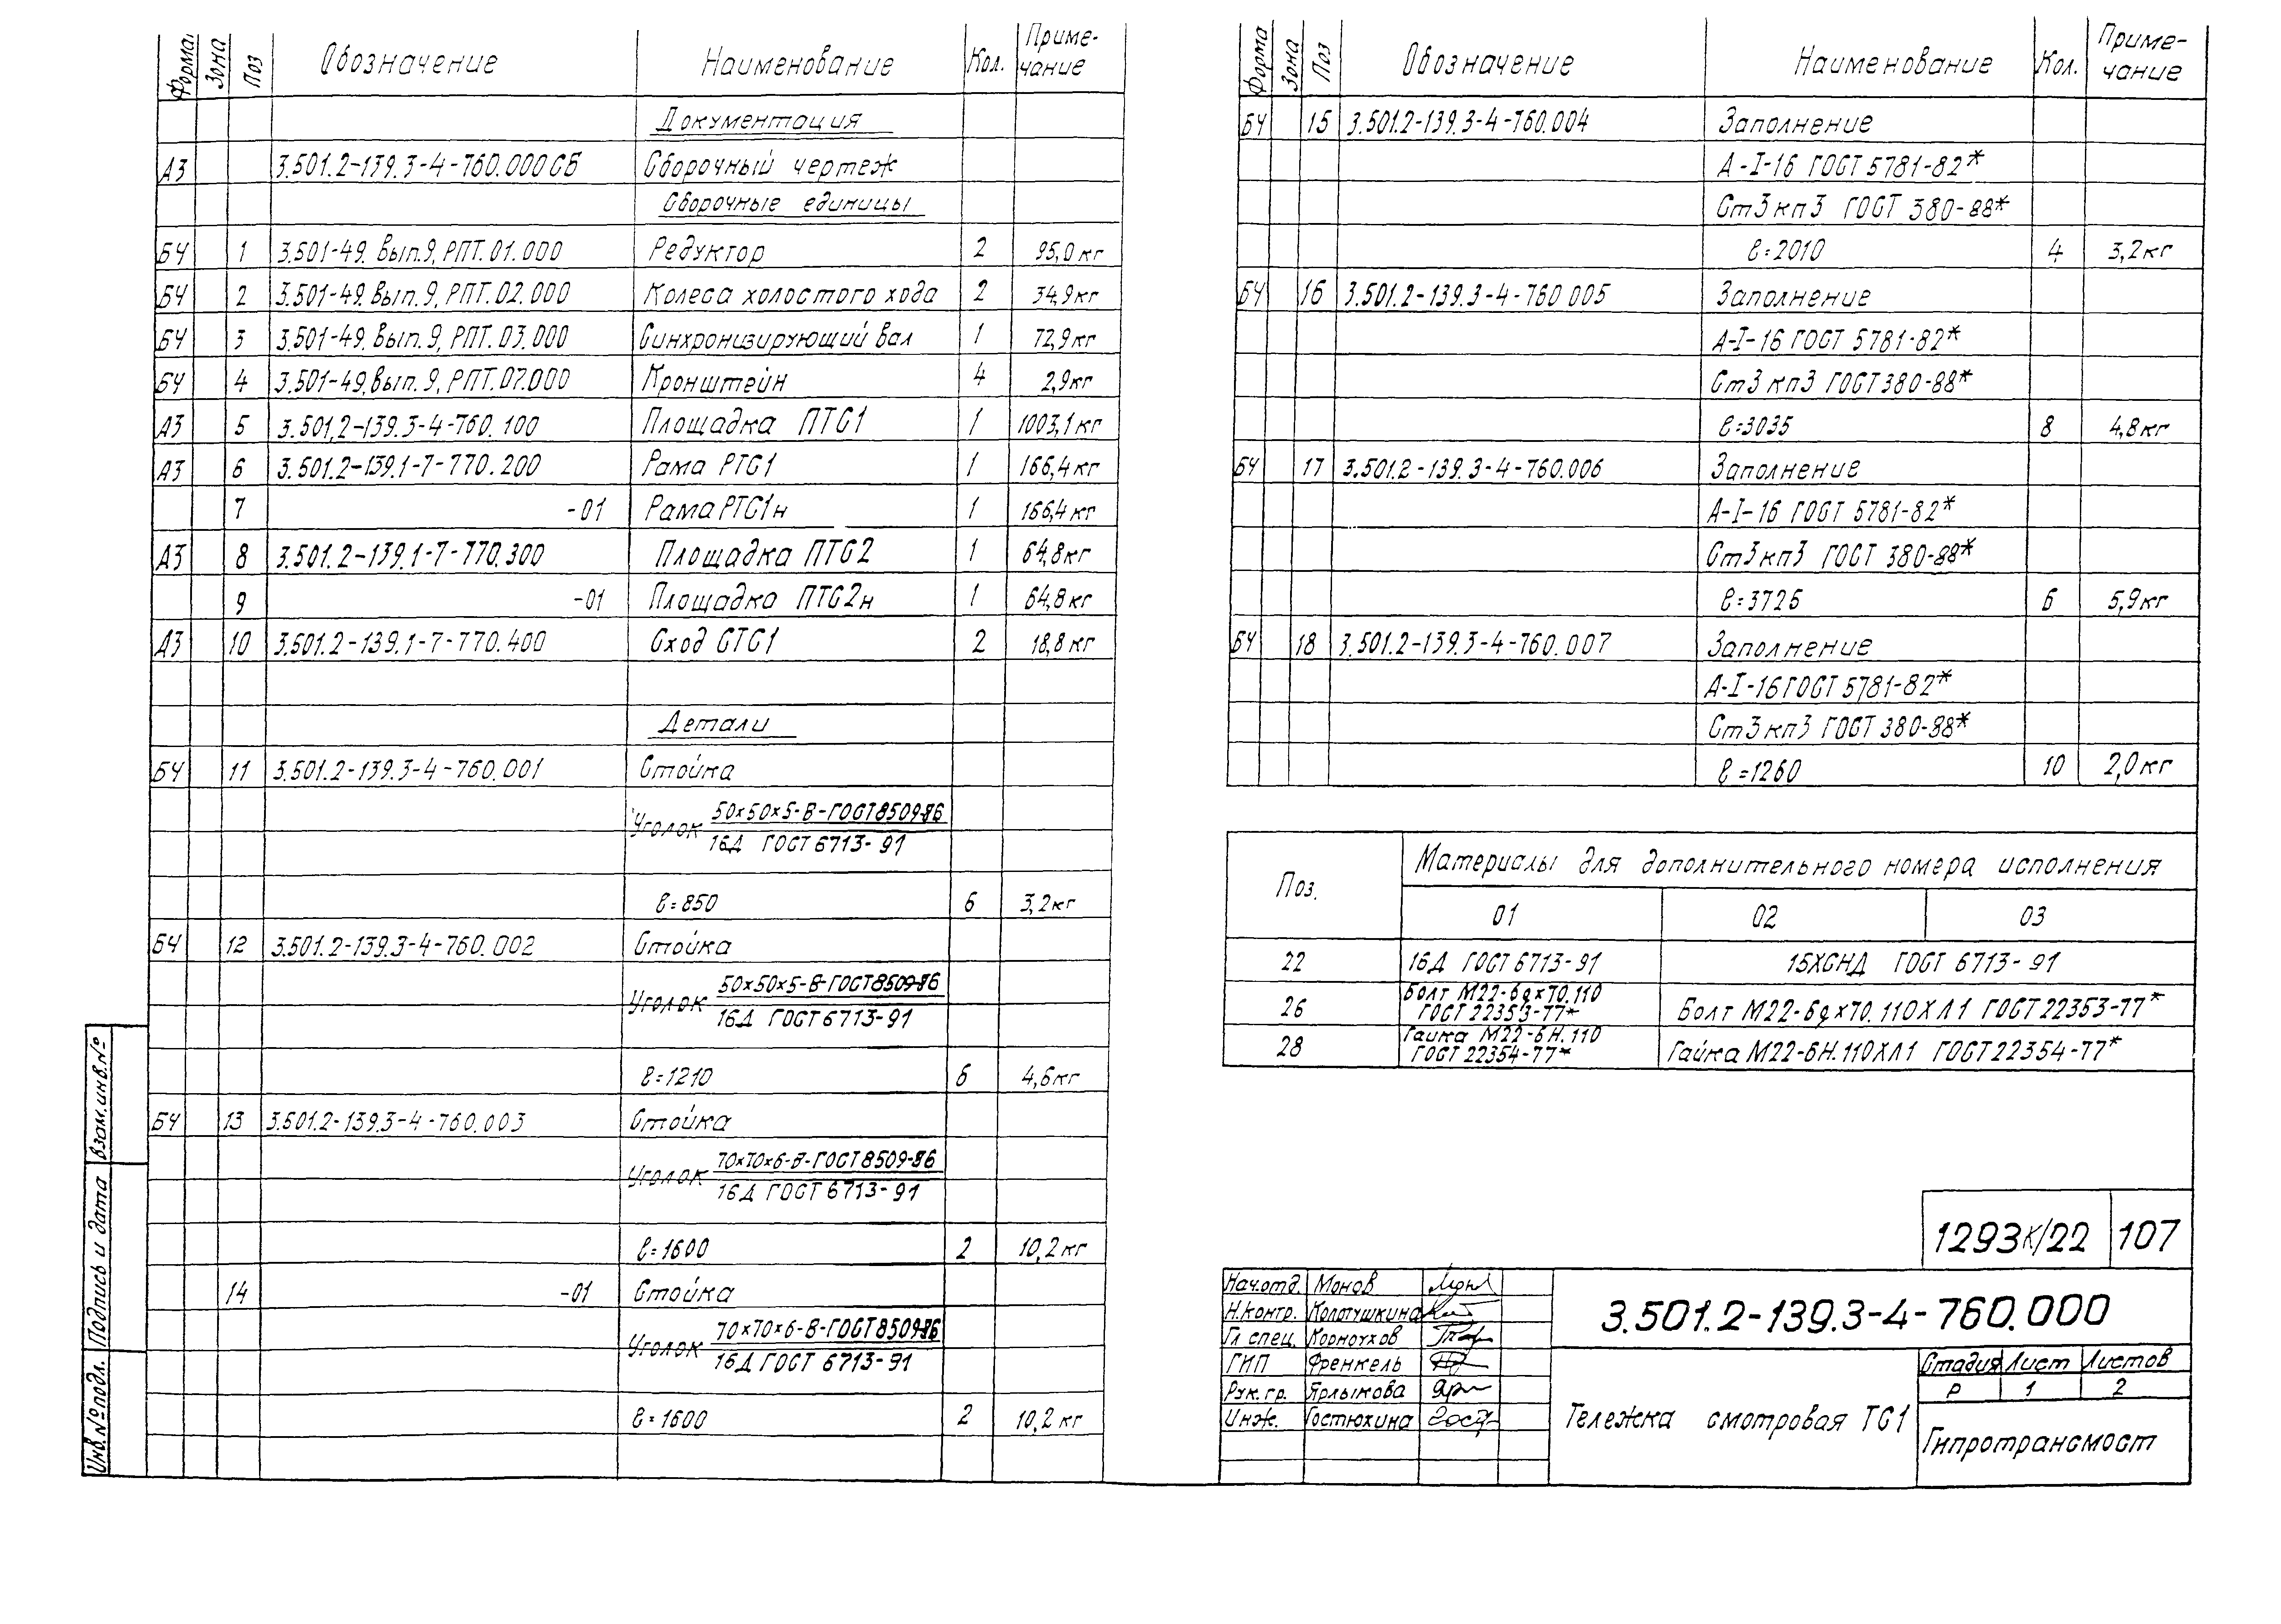 Форма Зона Поз Обозначение Наименование Кол. Примечание
Документация
А3 3.501.2-139.3-4-760.000СБ Сборочный чертеж
Сборочные единицы
БЧ 1 3.501-49. Вып.9, РПТ.01.000 Редуктор 2 95,0кг
БЧ 2 3.501-49. Вып.9, РПТ.02.000 Колеса холостого хода 2 34,9кг
БЧ 3 3.501-49. Вып.9, РПТ.03.000 Синхронизирующий вал 1 72,9кг
БЧ 4 3.501-49, Вып.9, РПТ.07.000 Кронштейн 4 2,9кг
А3 5 3.501,2-139.3-4-760.100 Площадка ПТС1 1 1003,1кг
А3 6 3.501.2-139.1-7-770.200 Рама РТС1 1 166,4кг
7 -01 Рама РТС1н 1 166,4кг
А3 8 3.501.2-139.1-7-770.300 Площадка ПТС2 1 64,8кг
9 -01 Площадка ПТС2н 1 64,8кг
А3 10 3.501.2-139.1-7-770.400 Сход СТС1 2 18,8кг
Детали
БЧ 11 3.501.2-139.3-4-760.001 Стойка
Уголок 50×50×5-В-ГОСТ8509-86
16Д ГОСТ 6713-91
ℓ=850 6 3,2кг
БЧ 12 3.501.2-139.3-4-760.002 Стойка
Уголок 50×50×5-В-ГОСТ8509-86
16Д ГОСТ 6713-91
ℓ=1210 6 4,6кг
БЧ 13 3.501.2-139.3-4-760.003 Стойка
Уголок 70×70×6-В-ГОСТ8509-86
16Д ГОСТ 6713-91
ℓ=1600 2 10,2кг
14 -01 Стойка
Уголок 70×70×6-В-ГОСТ8509-86
16Д ГОСТ 6713-91
ℓ=1600 2 10,2кг
Инв.№подл. Подпись и дата Взам.инв.№
Форма Зона Поз Обозначение Наименование Кол. Примечание
БЧ 15 3.501.2-139.3-4-760.004 Заполнение
А-I-16 ГОСТ 5781-82*
Ст3кп3 ГОСТ 380-88*
ℓ=2010 4 3,2кг
БЧ 16 3.501.2-139.3-4-760 005 Заполнение
А-I-16 ГОСТ 5781-82*
Ст3кп3 ГОСТ 380-88*
ℓ=3035 8 4,8кг
БЧ 17 3.501.2-139.3-4-760.006 Заполнение
А-I-16 ГОСТ 5781-82*
Ст3кп3 ГОСТ 380-88*
ℓ=3725 6 5,9кг
БЧ 18 3.501.2-139.3-4-760.007 Заполнение
А-I-16 ГОСТ 5781-82*
Ст3кп3 ГОСТ 380-88*
ℓ=1260 10 2,0кг
Поз. Материалы для дополнительного номера исполнения
01 02 03
22 16Д ГОСТ 6713-91 15ХСНД ГОСТ 6713-91
26 Болт М22-6g×70.110 ГОСТ 22353-77* Болт М22-6g×70.110ХЛ1 ГОСТ 22353-77*
28 Гайка М22-6Н.110 ГОСТ 22354-77* Гайка М22-6Н.110ХЛ1 ГОСТ 22354-77*
1293к/22 107
Нач.отд. Монов
Н.контр. Колтушкина
Гл спец. Корноухов
ГИП Френкель
Рук.гр. Ярлыкова
Инж. Гостюхина
3.501.2-139.3-4-760.000
Тележка смотровая ТС1
Стадия Лист Листов
Р 1 2
Гипротрансмост